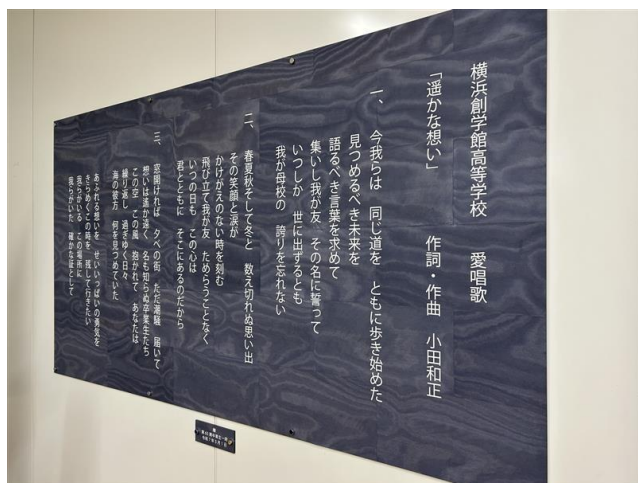 横浜創学館高等学校　愛唱歌
「遥かな想い」　作詞・作曲　小田和正
一、今我らは　同じ道を　ともに歩き始めた
見つめるべき未来を
語るべき言葉を求めて
集いし我が友　その名に誓って
いつしか　世に出ずるとも
我が母校の　誇りを忘れない
二、春夏秋そして冬と　数え切れぬ思い出
その笑顔と涙が
かけがえのない時を刻む
飛び立て我が友　ためらうことなく
いつの日も　この心は
君とともに　そこにあるのだから
三、窓開ければ　夕べの街　ただ潮騒　届いて
想いは遥か遠く　名も知らぬ卒業生たち
この空　この風　抱かれて　あなたは
繰り返し　過ぎゆく日々
海の彼方　何を見つめていた
あふれる想いを　せいいっぱいの勇気を
きらめくこの時を　残して行きたい
我らがいる　この場所に
我らがいた　確かな証として